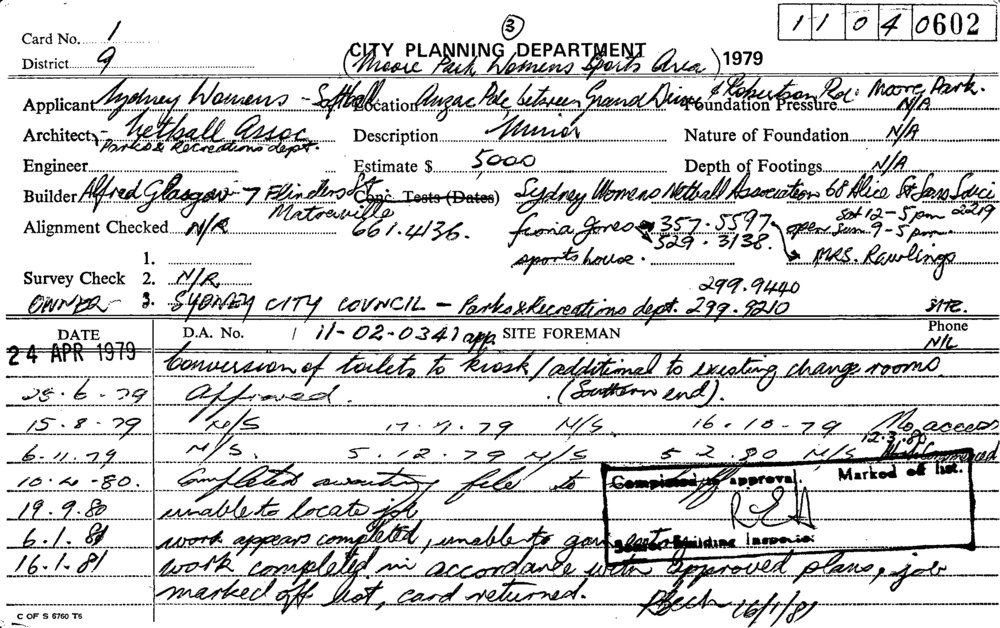 11040602
3
Card No. 1
CITY PLANNING DEPARTMENT 1979
District 9 (Moore Park Womens Sports Area)
Applicant Sydney Womens - Softball Location Anzac Pde, between Grand Drive & Robertson Rd: Moore Park. Foundation Pressure N/A
Architect Netball Assoc Description Minor Nature of Foundation N/A
Parks & Recreations dept.
Engineer Estimate $ 5000 Depth of Footings N/A
Builder Alfred Glasgow 7 Flinders St Conc. Tests (Dates) Sydney Womens Netball Association 68 Alice St Sans Souci 2219
Matraville
Alignment Checked N/R 661.4136. Fiona Jones 357.5597 open Sat 12-5pm Sun 9-5pm
529.3138.
1. sports house. MRS. Rawlings
Survey Check 2. N/R 299.9440
OWNER 3. SYDNEY CITY COUNCIL - Parks & Recreations dept. 299.9210 SITE.
DATE D.A. No. 11-02-0341 app. SITE FOREMAN Phone
N/L
24 APR 1979 Conversion of toilets to kiosk/additional to existing change rooms
(Southern end).
25.6.79 Approved.
15.8.79 N/S 17.9.79 N/S. 16.10.79 No access
6.11.79 N/S. 5.12.79 N/S 5.2.80 N/S 12.3.80
10-4-80. Completed awaiting file to
Completed to approval. Marked off list.
19.9.80 unable to locate job
6.1.81 work appears completed, unable to gain entry
Senior Building Inspector
16.1.81 work completed in accordance with approved plans, job
marked off list, card returned. 16/1/81
C OF S 6760 T5